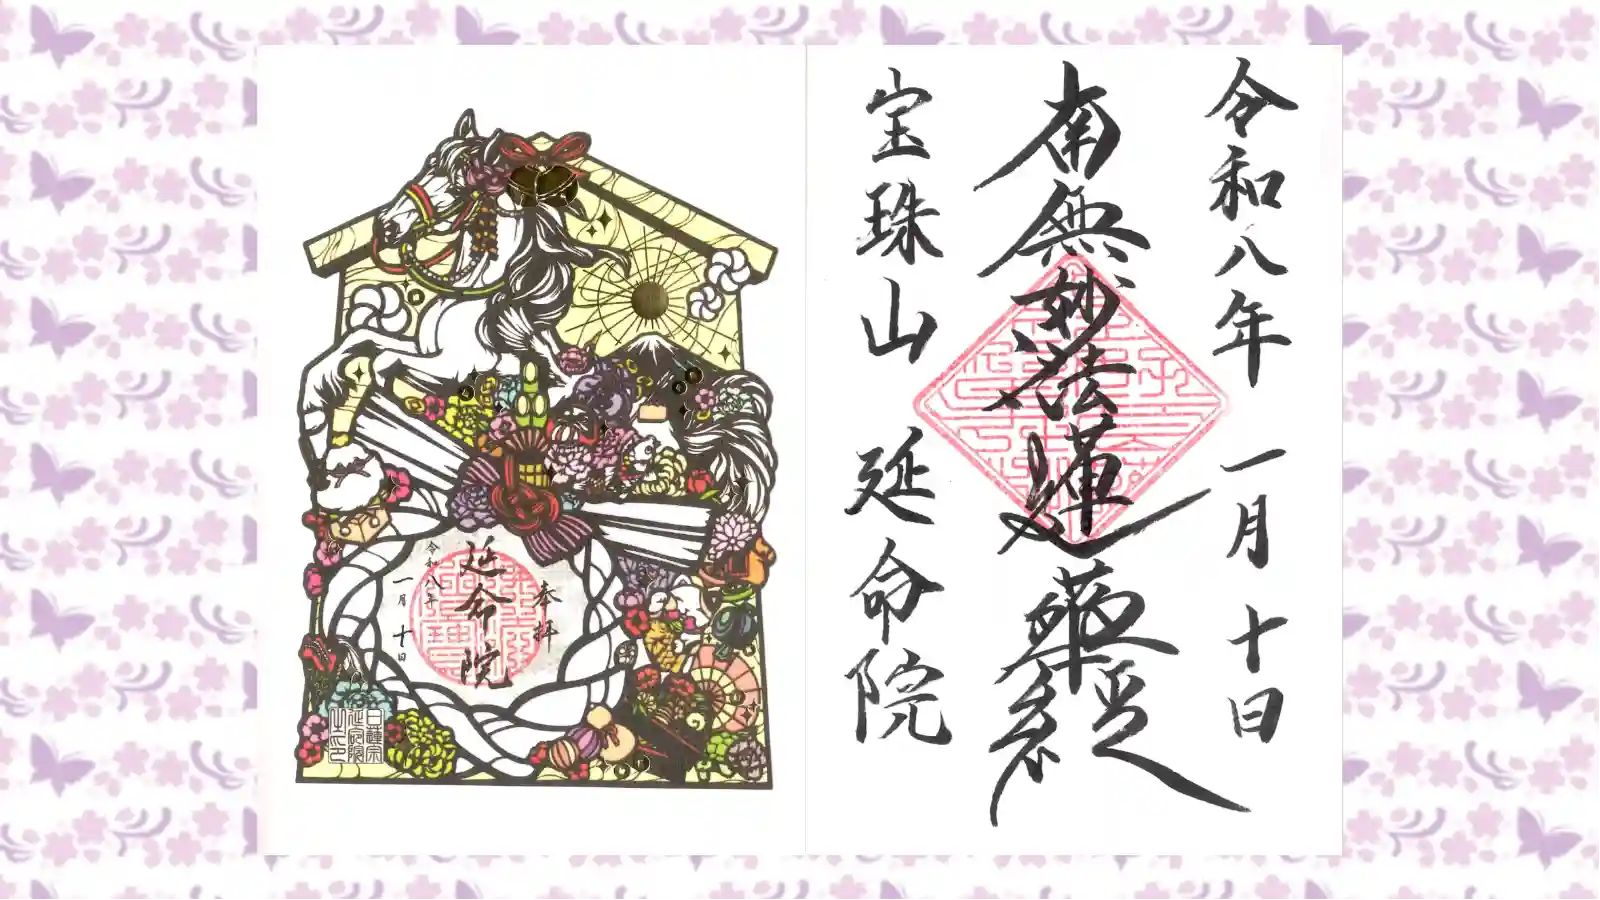 令和八年 一月 十日
南無妙法蓮華經
宝珠山 延命院
奉拝
延命院
令和八年
一月 十日
日蓮宗
延命院
之印